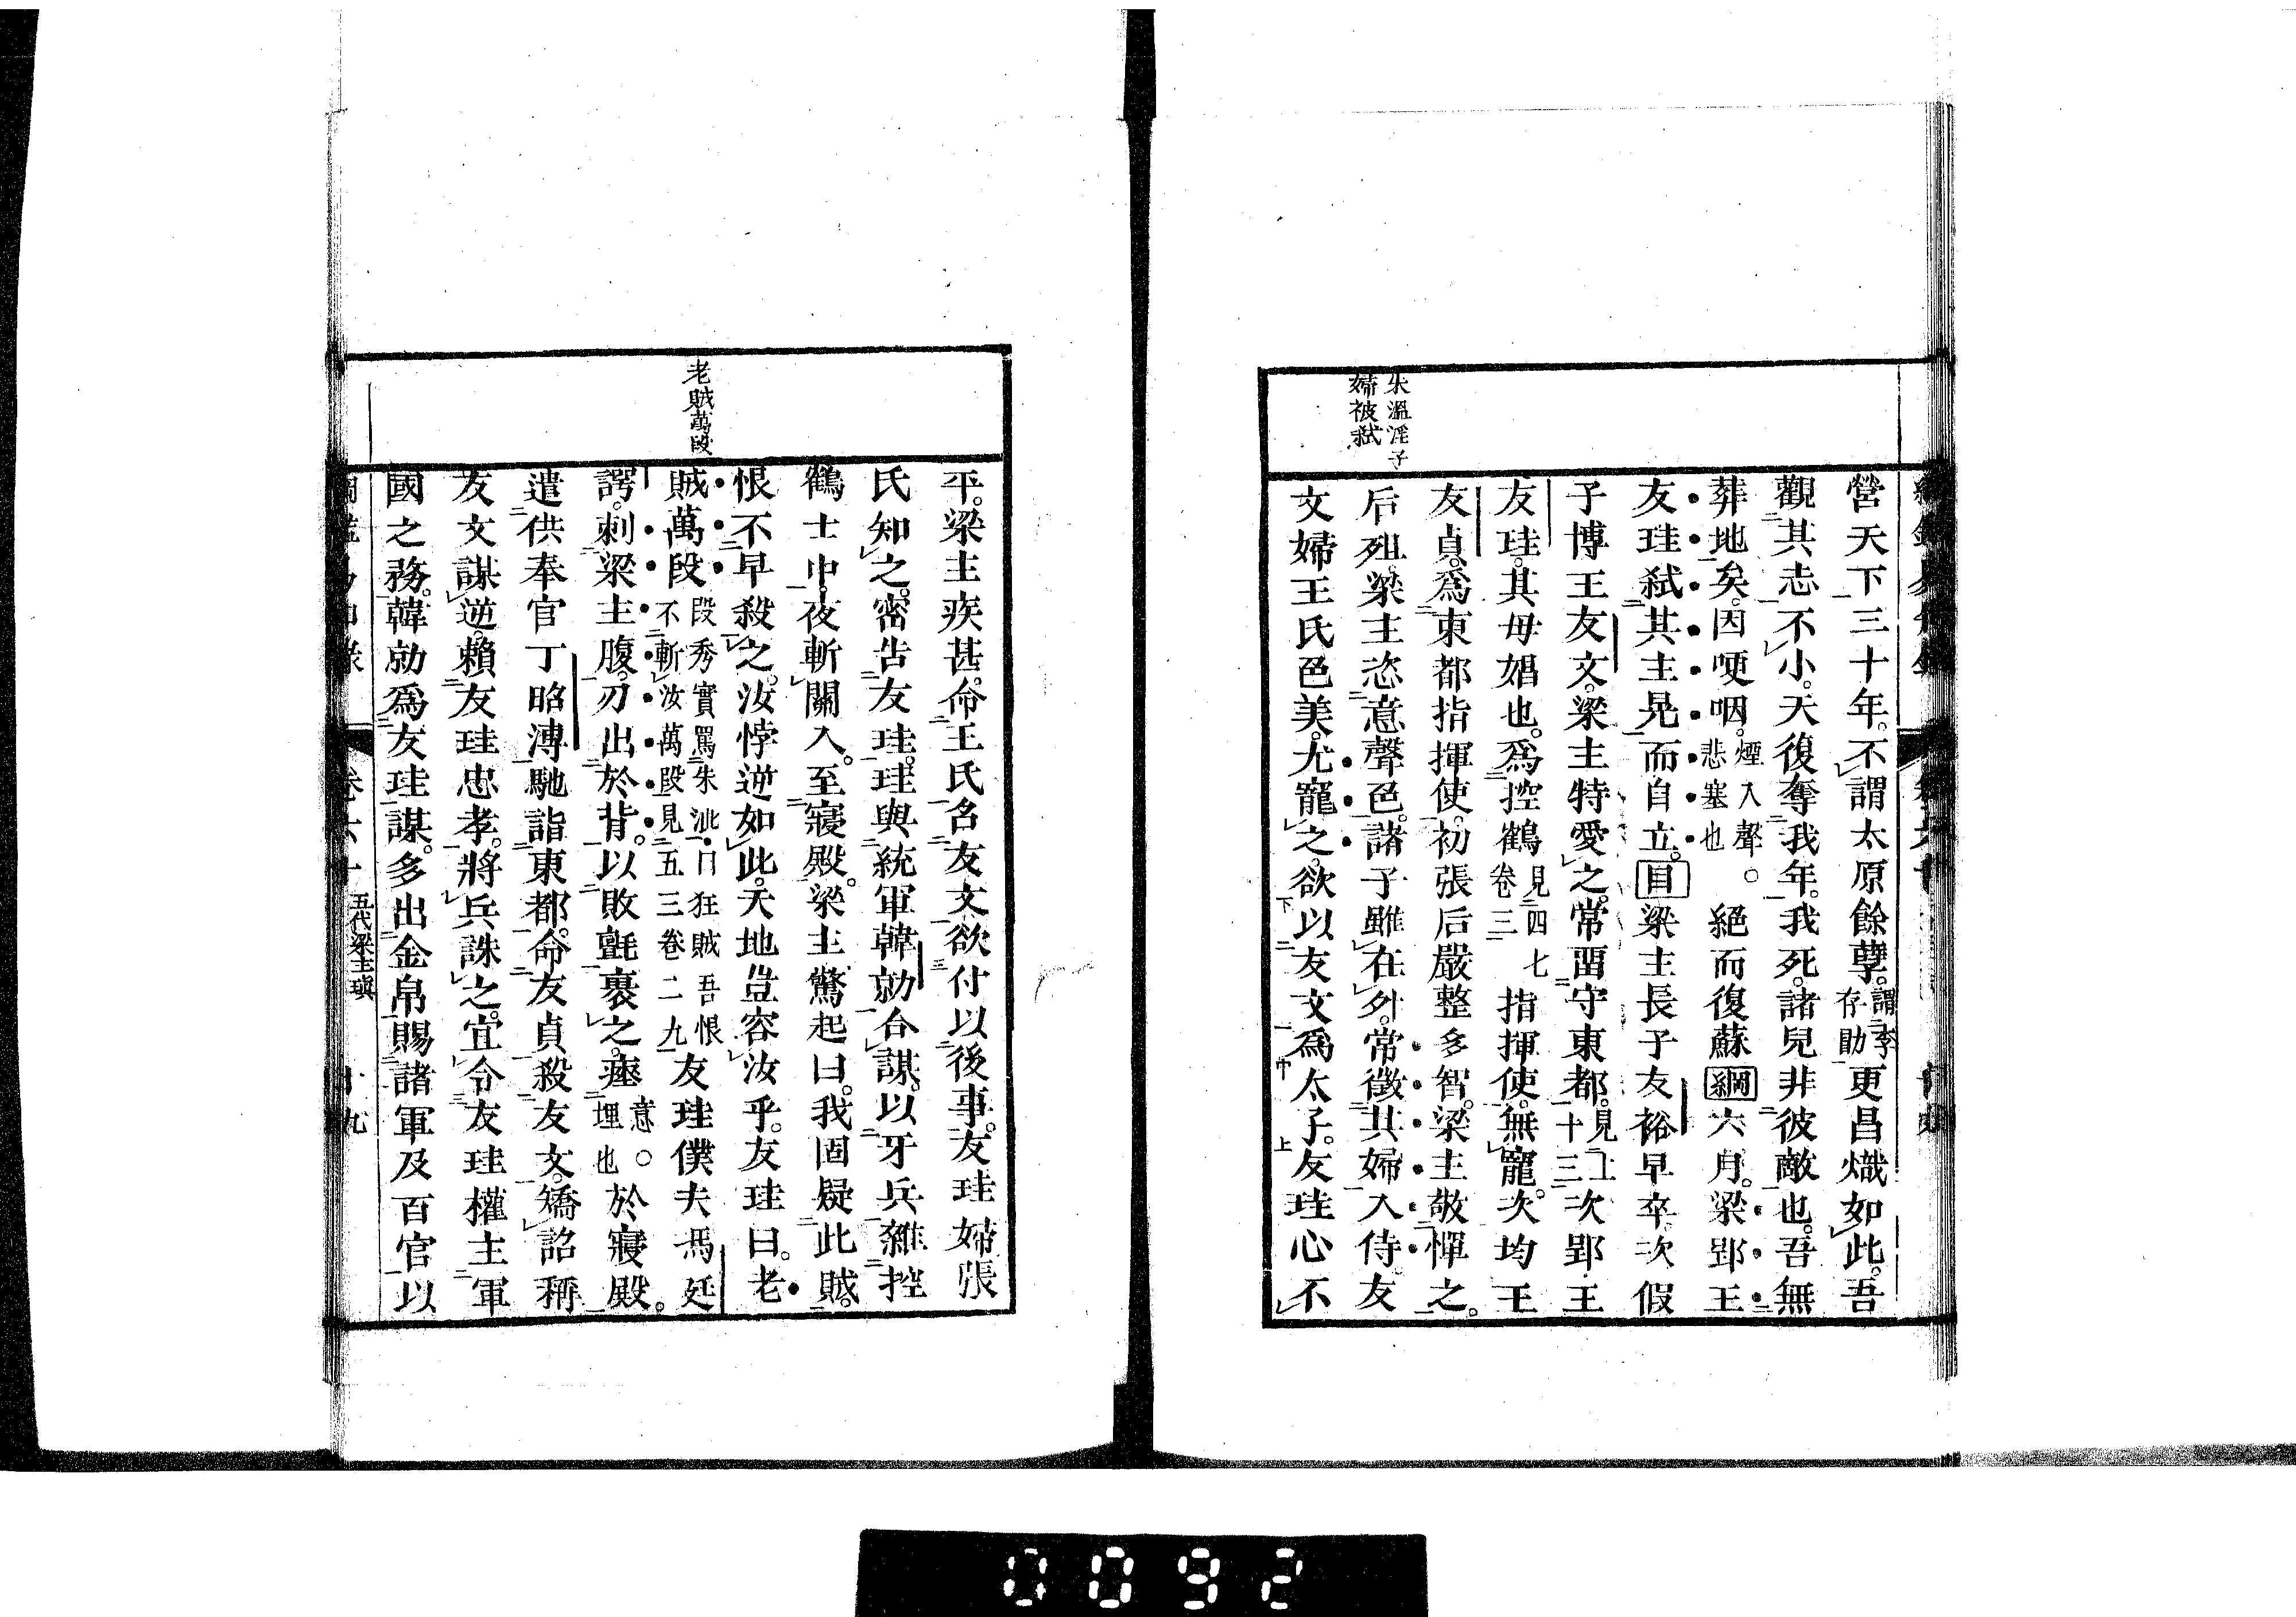 朱溫淫子
婦被弑
營天下三十年。不謂太原餘孽。謂李存勖更昌熾如此。吾
觀其志不小。天復奪我年。我死。諸兒非彼敵也。吾無
葬地矣。因哽咽。煙入聲。悲塞也。絕而復蘇綱六月。梁郢王
友珪弑其主晃而自立。目梁主長子友裕早卒。次假
子博王友文。梁主特愛之。常畱守東都。見上十三次郢王
友珪。其母娼也。爲控鶴見四七卷三指揮使。無寵。次均王
友貞。爲東都指揮使。初張后嚴整多智。梁主敬憚之。
后殂。梁主恣意聲色。諸子雖在外。常徵其婦入侍。友
文婦王氏色美。尤寵之。欲以友文爲太子。友珪心不
老賊萬段
平。梁主疾甚。命王氏召友文。欲付以後事。友珪婦張
氏知之。密告友珪。珪與統軍韓勍合謀。以牙兵雜控
鶴士中。夜斬關入。至寢殿。梁主驚起曰。我固疑此賊。
恨不早殺之。汝悖逆如此。天地豈容汝乎。友珪曰。老
賊萬段段秀實罵朱泚曰狂賊吾恨不斬汝萬段見五三卷二九友珪僕夫馮廷
諤。刺梁主腹。刃出於背。以敗氈裹之。瘞意。埋也於寢殿。
遣供奉官丁昭溥馳詣東都。命友貞殺友文。矯詔稱
友文謀逆。賴友珪忠孝。將兵誅之。宜令友珪權主軍
國之務。韓勍爲友珪謀。多出金帛賜諸軍及百官以
卷六十 五代梁主瑱 十九
0092